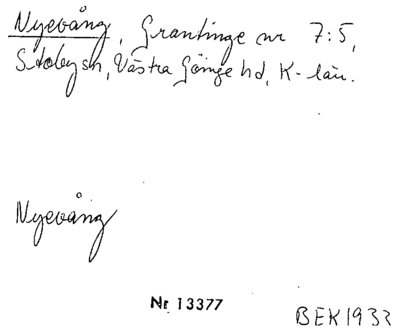 Nyevång, Grantinge nr 7:5,
Stoby sn, Västra Göinge hd, K-län.
Nyevång
Nr 13377
BEK 1933